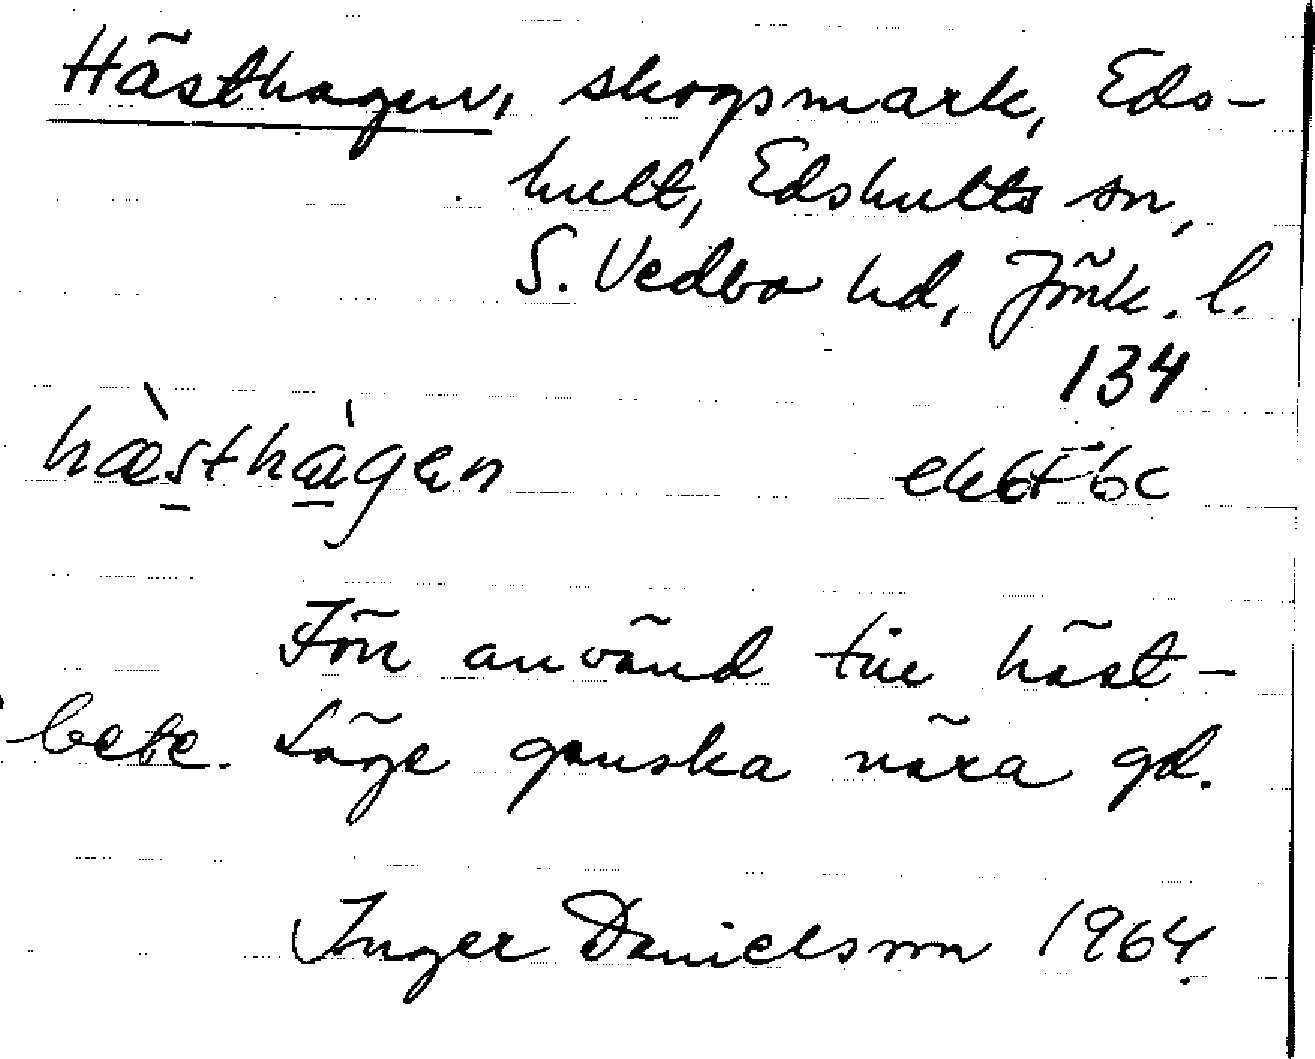 Hästhagen, skogsmark, Eds-
hult, Edshults sn,
S. Vedbo hd, Jönk. l.
134
hæ̀sthàgen ek6f6c
Förr använd till häst-
bete. Läge ganska nära gd.
Inger Danielsson 1964.